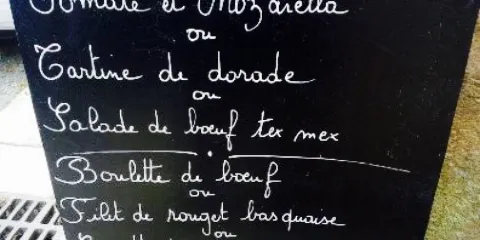 Tomate et Mozarella
ou
Tartine de dorade
ou
Salade de bœuf tex mex
Boulette de bœuf
ou
Filet de rouget basquaise
ou